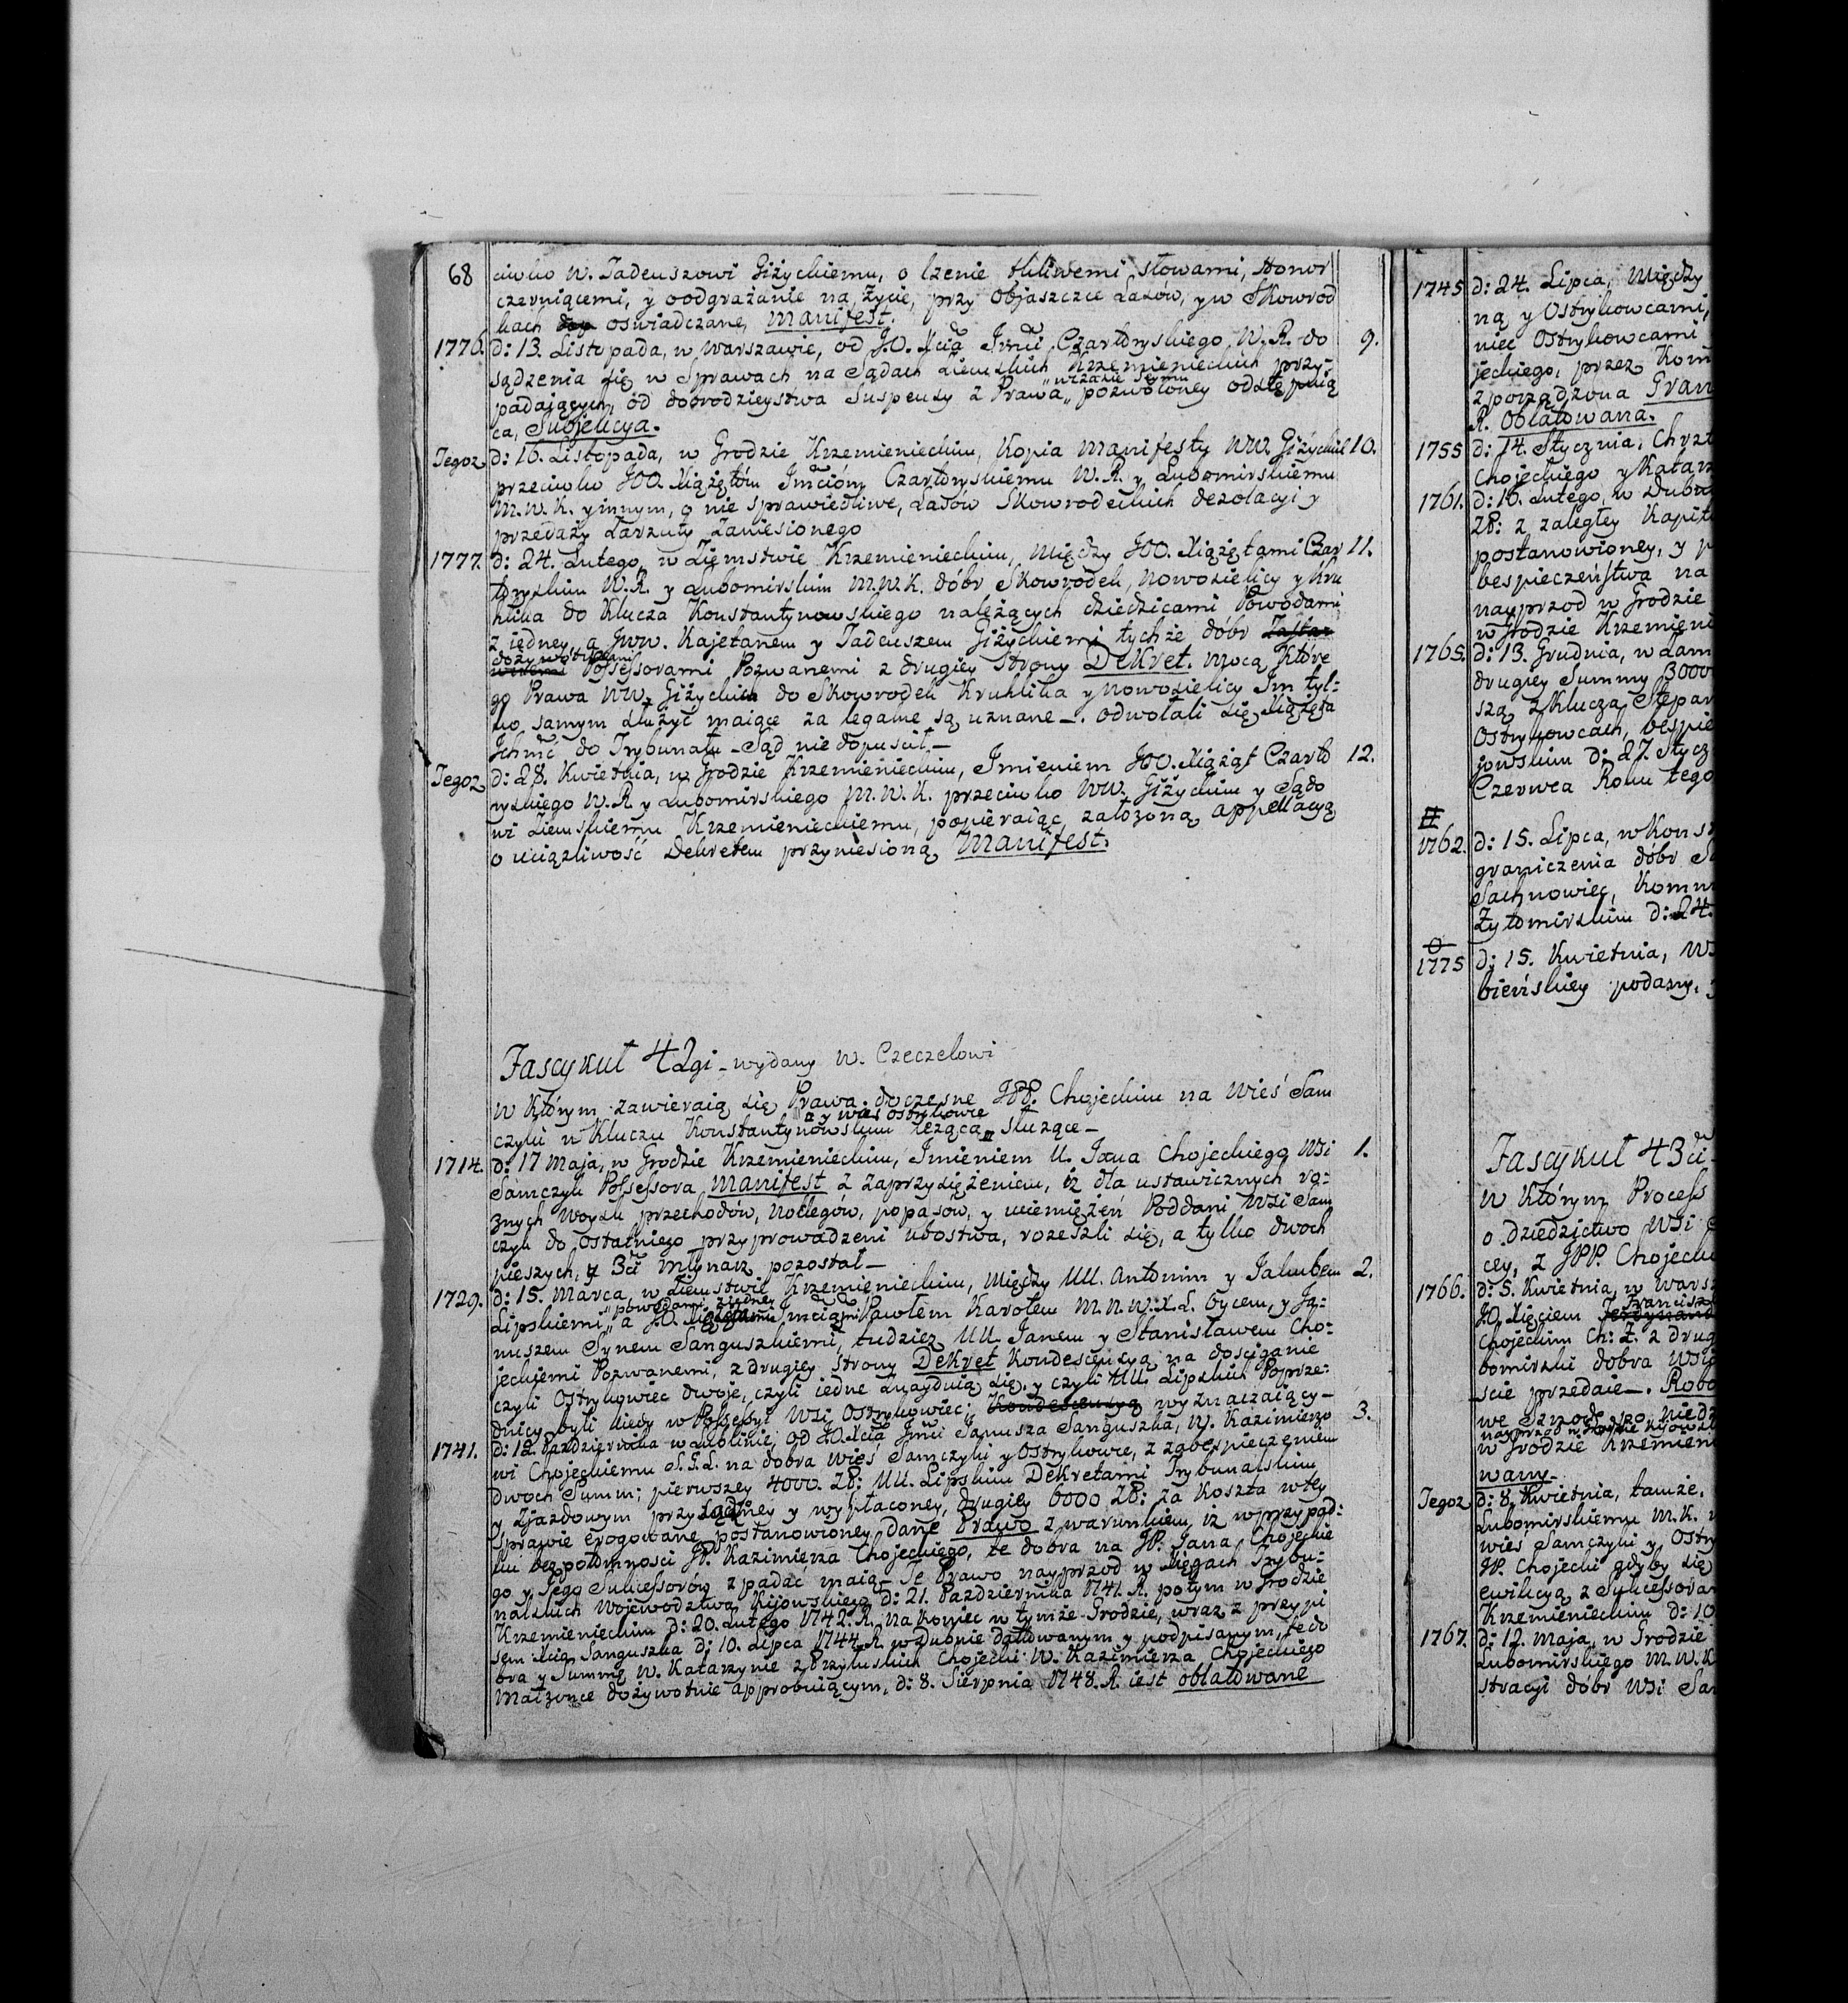 68
ciwko W. Tadeuszowi Giżyckiemu, o lzenie słowami, Honor
czerniącemi, y oodgrażanie na życie, przy objaszczce Lasów, y w Skowrod
kach oswiadczane, Manifest.
1776. d: 13. Listopada, w Warszawie, od JO. Xcia Jmci Czartoryskiego W. R. do 9.
sądzenia się w Sprawach na Sądach Ziemskich Krzemienieckich przy-
padających, od dobrodzieystwa Suspensy z Prawa „ w czasie Seymu „ pozwoloney odstępuią
ca, Submissya.
Tegoz d: 16. Listopada, w Grodzie Krzemienieckim, Kopia Manifestu WW. Giżyckich 10.
przeciwko JOO. Xiążętóm Jmcióm Czartoryskiemu W. R. y Lubomirskiemu
M. W. K. y innym, o nie sprawiedliwe, Lasów Skowrodeckich dezolacyi y
przedaży zarzuty zaniesionego
1777. d: 24. Lutego, w Ziemstwie Krzemienieckim, między JOO. Xiążętami Czar 11.
toryskim W. R. y Lubomirskim M. W. K. dóbr Skowrodek, Nowosielicy y Kru
hlika do Klucza Konstantynowskiego należących dziedzicami Powodami
z iedney, a JWW. Kajetanem y Tadeuszem Giżyckiemi tychże dóbr Zastaw
dożywotniemi
Possessorami Pozwanemi z drugiey Strony Dekret. mocą które
go Prawa WW. Giżyckich do Skowrodek Kruhlika y Nowosielicy Im tyl:
ko samym służyć maiące za legalne są uznane –. odwołali się Xiążęta
Ichmć do Trybunału – Sąd nie dopuscił –
Tegoz d: 28. Kwietnia, w Grodzie Krzemienieckim, Imieniem JOO. Xiążąt Czarto 12.
ryskiego W. R. y Lubomirskiego M. W. K. przeciwko WW. Giżyckim y Sądo
wi Ziemskiemu Krzemienieckiemu, popieraiąc założoną appellacyą
o uciążliwość Dekretem przyniesioną Manifest.
Fascykuł 42gi – wydany W. Czeczelowi
w Którym zawieraią się Prawa doczesne JPP. Choieckim na Wieś Sam
czyki w Kluczu Konstantynowskim leżącą „ y wieś Ostrykowce „ służące –
1714. d: 17 Maja, w Grodzie Krzemienieckim, Imieniem U. Jana Chojeckiego Wsi 1.
Samczyk Possessora Manifest z zaprzysiężeniem, iż dla ustawicznych ró:
żnych Woysk przechodów, Noclegów, popasów, y uciemiężeń Poddani Wsi Sam
czyk do ostatniego przyprowadzeni ubostwa, rozeszli się, a tylko dwoch
pieszych, y 3ci Młynarz pozostał –
1729. d: 15. Marca, w Ziemstwie Krzemienieckim, między UU. Antonim y Jakubem 2.
Lipskiemi „ powodami z iedney „ a JO. Xiążętami Jmciami Pawłem Karolem M. N. W. X. L. Oycem, y Ja:
nuszem Synem Sanguszkiemi, tudziez UU. Janem y Stanisławem Cho:
jeckiemi Pozwanemi, z drugiey strony Dekret Kondescensyą na dosciganie
czyli Ostrykowiec dwoje, czyli iedne znayduią się, y czyli UU. Lipskich Poprze:
dnicy byli kiedy w Possessyi Wsi Ostrykowiec; Kondescensyą wyznaczaiący –
1741. d: 12. Października w Lublinie, od JO. Xcia Jmci Janusza Sanguszka, W. Kazimierzo 3.
wi Chojeckiemu na dobra Wieś Samczyki y Ostrykowce, z zabespieczeniem
dwoch Summ; pierwszey 4000. Zł: UU. Lipskim Dekretami Trybunalskim
y Zjazdowym przysądzoney y wypłaconey, drugiey 6000 Zł: za koszta w tey
Sprawie erogowane postanowioney, dane Prawo z warunkiem, iż w przypad:
ku bezpotomnosci JP. Kazimierza Chojeckiego, te dobra na JP. Jana Chojeckie
go y Jego Sukcessorów spadać maią – Te Prawo nayprzod w Xięgach Trybu:
nalskich Wojewodztwa Kijowskiego d: 21. Pazdziernika 1741. R. potym w Grodzie
Krzemienieckim d: 20. Lutego 1742. R. na koniec w tymże Grodzie, wraz z przypi
sem Xcia Sanguszka d: 10. Lipca 1744. R. w Dubnie datowanym y podpisanym, te do
bra y Summę W. Katarzynie z Przyłuskich Chojecki W. Kazimierza Chojeckiego
Małżonce dożywotnie approbuiącym, d: 8. Sierpnia 1748. R. iest oblatowane
1745 d: 24. Lipca, Między
ną y Ostrykowcami,
niec Ostrykowcami
jeckiego, przez Kom
zporządzona Gran
R. Oblatowana.
1755 d: 14. Stycznia, Chrzt
Chojeckiego y Katarz
1761. d: 16. Lutego, w Dubn
Zł: z zaległey Kapit
postanowioney, y
bespieczeństwa na
nayprzod w Grodzie
w Grodzie Krzemieni
1765. d: 13. Grudnia, w Zam
drugiey Summy 3000
szą z Klucza Stepan
Ostrykowcach, bespie
jowskim d: 27. Stycz
Czerwca Roku tego
1762. d: 15. Lipca, w Kons
graniczenia dóbr S
Sachnowiec, Komm
Żytomirskim d: 24.
1775 d: 15. Kwietnia, W
bieńskiey podany,
Fascykuł 43ci
w Którym Process
o dziedzictwo Wsi
cey, z JPP. Chojeck
1766. d: 5. Kwietnia, w Wars
JO. Xięciem Francisz
Chojeckim Ch: Ż. z drug
bomirski dobra Wsi
scie przedaie –. Robo
nayprzod w Grodzie
w Grodzie Krzemien
wany –
Tegoz d: 8. Kwietnia, tamże,
Lubomirskiemu M. K.
wieś Samczyki y Ostry
JP. Chojecki gdyby się
ewikcyą z Sukcessora
Krzemienieckim d: 10
1767. d: 12. Maja, w Grodzie
Lubomirskiego M. W. K
stracyi dobr Wsi Sa